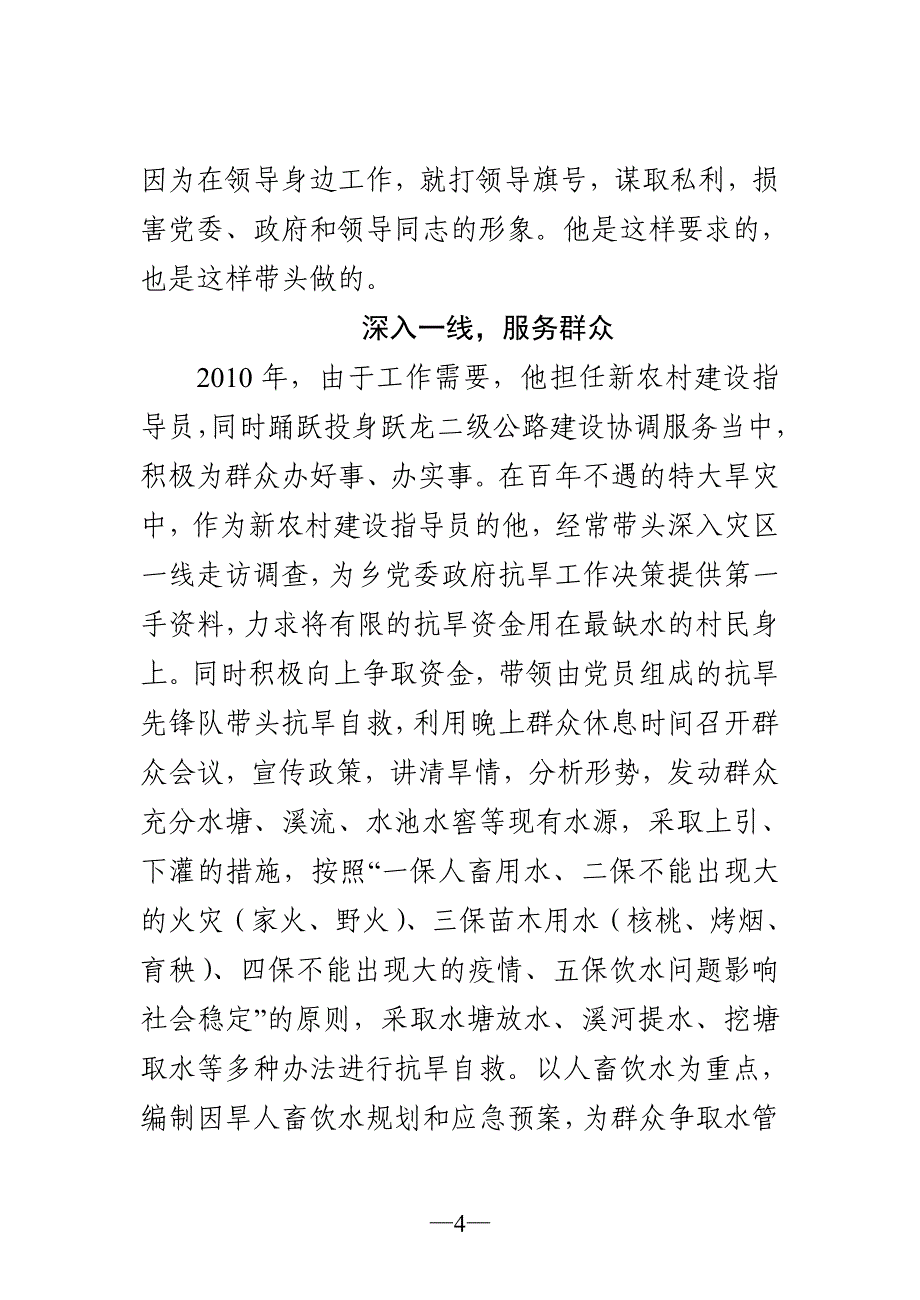 因为在领导身边工作，就打领导旗号，谋取私利，损
害党委、政府和领导同志的形象。他是这样要求的，
也是这样带头做的。
深入一线，服务群众
2010 年，由于工作需要，他担任新农村建设指
导员，同时踊跃投身跃龙二级公路建设协调服务当中，
积极为群众办好事、办实事。在百年不遇的特大旱灾
中，作为新农村建设指导员的他，经常带头深入灾区
一线走访调查，为乡党委政府抗旱工作决策提供第一
手资料，力求将有限的抗旱资金用在最缺水的村民身
上。同时积极向上争取资金，带领由党员组成的抗旱
先锋队带头抗旱自救，利用晚上群众休息时间召开群
众会议，宣传政策，讲清旱情，分析形势，发动群众
充分水塘、溪流、水池水窖等现有水源，采取上引、
下灌的措施，按照“一保人畜用水、二保不能出现大
的火灾（家火、野火）、三保苗木用水（核桃、烤烟、
育秧）、四保不能出现大的疫情、五保饮水问题影响
社会稳定”的原则，采取水塘放水、溪河提水、挖塘
取水等多种办法进行抗旱自救。以人畜饮水为重点，
编制因旱人畜饮水规划和应急预案，为群众争取水管
—4—